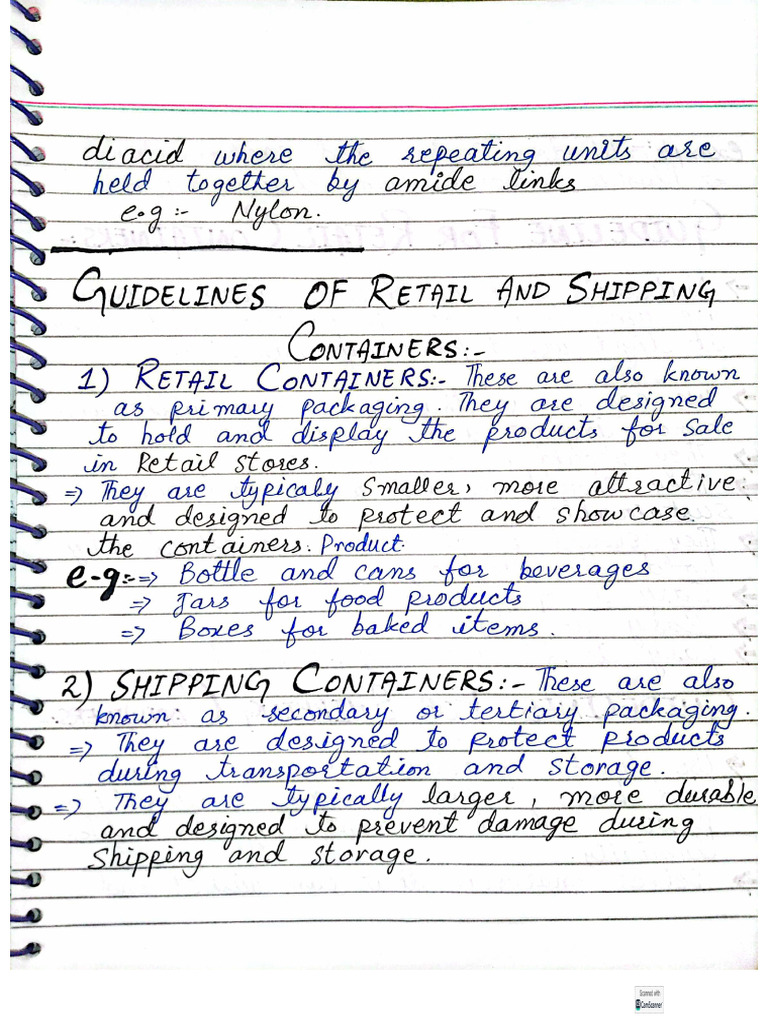 diacid where the repeating units are
held together by amide links
e.g :- Nylon.
GUIDELINES OF RETAIL AND SHIPPING
CONTAINERS:-
1) RETAIL CONTAINERS:- These are also known
as primary packaging. They are designed
to hold and display the products for sale
in Retail stores.
=> They are typicaly smaller, more attractive
and designed to protect and showcase
the containers. Product.
e-g:-=> Bottle and cans for beverages
=> Jars for food products
=> Boxes for baked items.
2) SHIPPING CONTAINERS:- These are also
known as secondary or tertiary packaging.
=> They are designed to protect products
during transportation and storage.
=> They are typically larger, more durable
and designed to prevent damage during
shipping and storage.
Scanned with
CS CamScanner